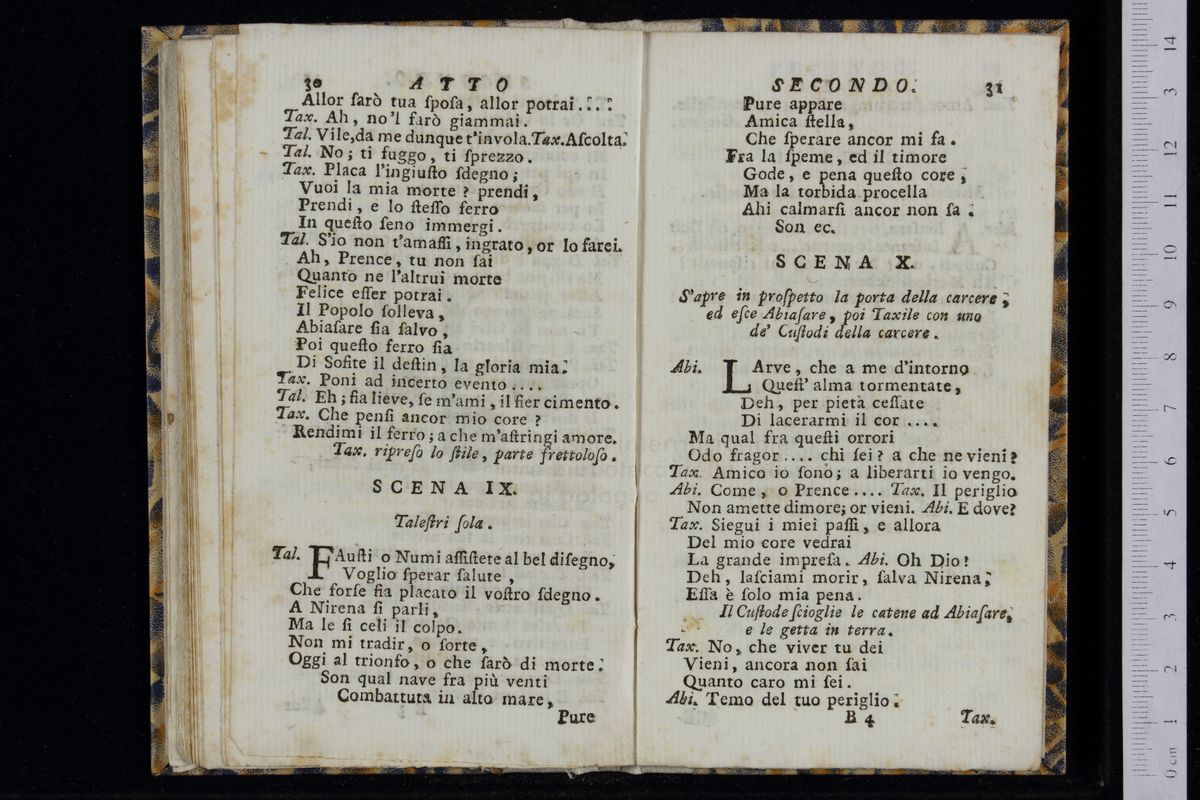 30 ATTO
Allor ſarò tua ſpoſa, allor potrai....
Tax. Ah, no'l farò giammai.
Tal. Vile, da me dunque t'invola. Tax. Aſcolta.
Tal. No; ti fuggo, ti ſprezzo.
Tax. Placa l'ingiuſto ſdegno;
Vuoi la mia morte? prendi,
Prendi, e lo ſteſſo ferro
In queſto ſeno immergi.
Tal. S'io non t'amaſſi, ingrato, or lo farei.
Ah, Prence, tu non ſai
Quanto ne l'altrui morte
Felice eſſer potrai.
Il Popolo ſolleva,
Abiaſare ſia ſalvo,
Poi queſto ferro ſia
Di Sofite il deſtin, la gloria mia.
Tax. Poni ad incerto evento....
Tal. Eh; ſia lieve, ſe m'ami, il fier cimento.
Tax. Che penſi ancor mio core?
Rendimi il ferro; a che m'aſtringi amore.
Tax. ripreſo lo ſtile, parte frettoloſo.
SCENA IX.
Taleſtri ſola.
Tal. FAuſti o Numi aſſiſtete al bel diſegno,
Voglio ſperar ſalute,
Che forſe ſia placato il voſtro ſdegno.
A Nirena ſi parli,
Ma le ſi celi il colpo.
Non mi tradir, o ſorte,
Oggi al trionfo, o che ſarò di morte.
Son qual nave fra più venti
Combattuta in alto mare,
Pure
SECONDO. 31
Pure appare
Amica ſtella,
Che ſperare ancor mi fa.
Fra la ſpeme, ed il timore
Gode, e pena queſto core,
Ma la torbida procella
Ahi calmarſi ancor non ſa.
Son ec.
SCENA X.
S'apre in proſpetto la porta della carcere,
ed eſce Abiaſare, poi Taxile con uno
de' Cuſtodi della carcere.
Abi. LArve, che a me d'intorno
Queſt' alma tormentate,
Deh, per pietà ceſſate
Di lacerarmi il cor....
Ma qual fra queſti orrori
Odo fragor.... chi ſei? a che ne vieni?
Tax. Amico io ſono; a liberarti io vengo.
Abi. Come, o Prence.... Tax. Il periglio
Non amette dimore; or vieni. Abi. E dove?
Tax. Siegui i miei paſſi, e allora
Del mio core vedrai
La grande impreſa. Abi. Oh Dio!
Deh, laſciami morir, ſalva Nirena,
Eſſa è ſolo mia pena.
Il Cuſtode ſcioglie le catene ad Abiaſare,
e le getta in terra.
Tax. No, che viver tu dei
Vieni, ancora non ſai
Quanto caro mi ſei.
Abi. Temo del tuo periglio.
B 4 Tax.